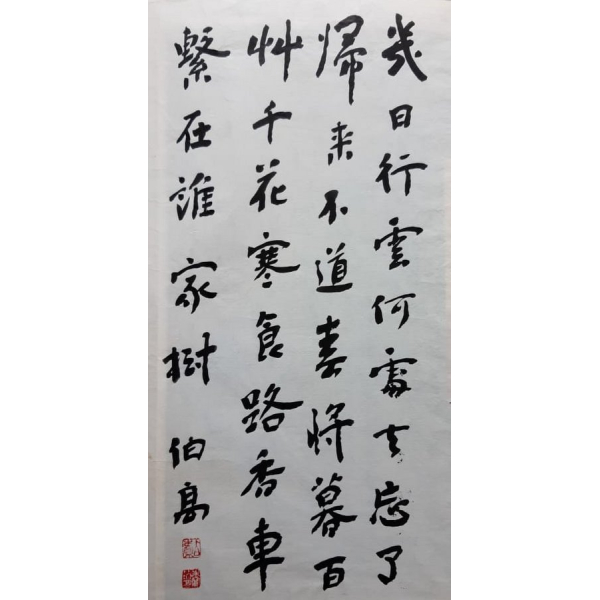 幾日行雲何處去忘了
歸來不道春將暮百
艸千花寒食路香車
繫在誰家樹 伯高